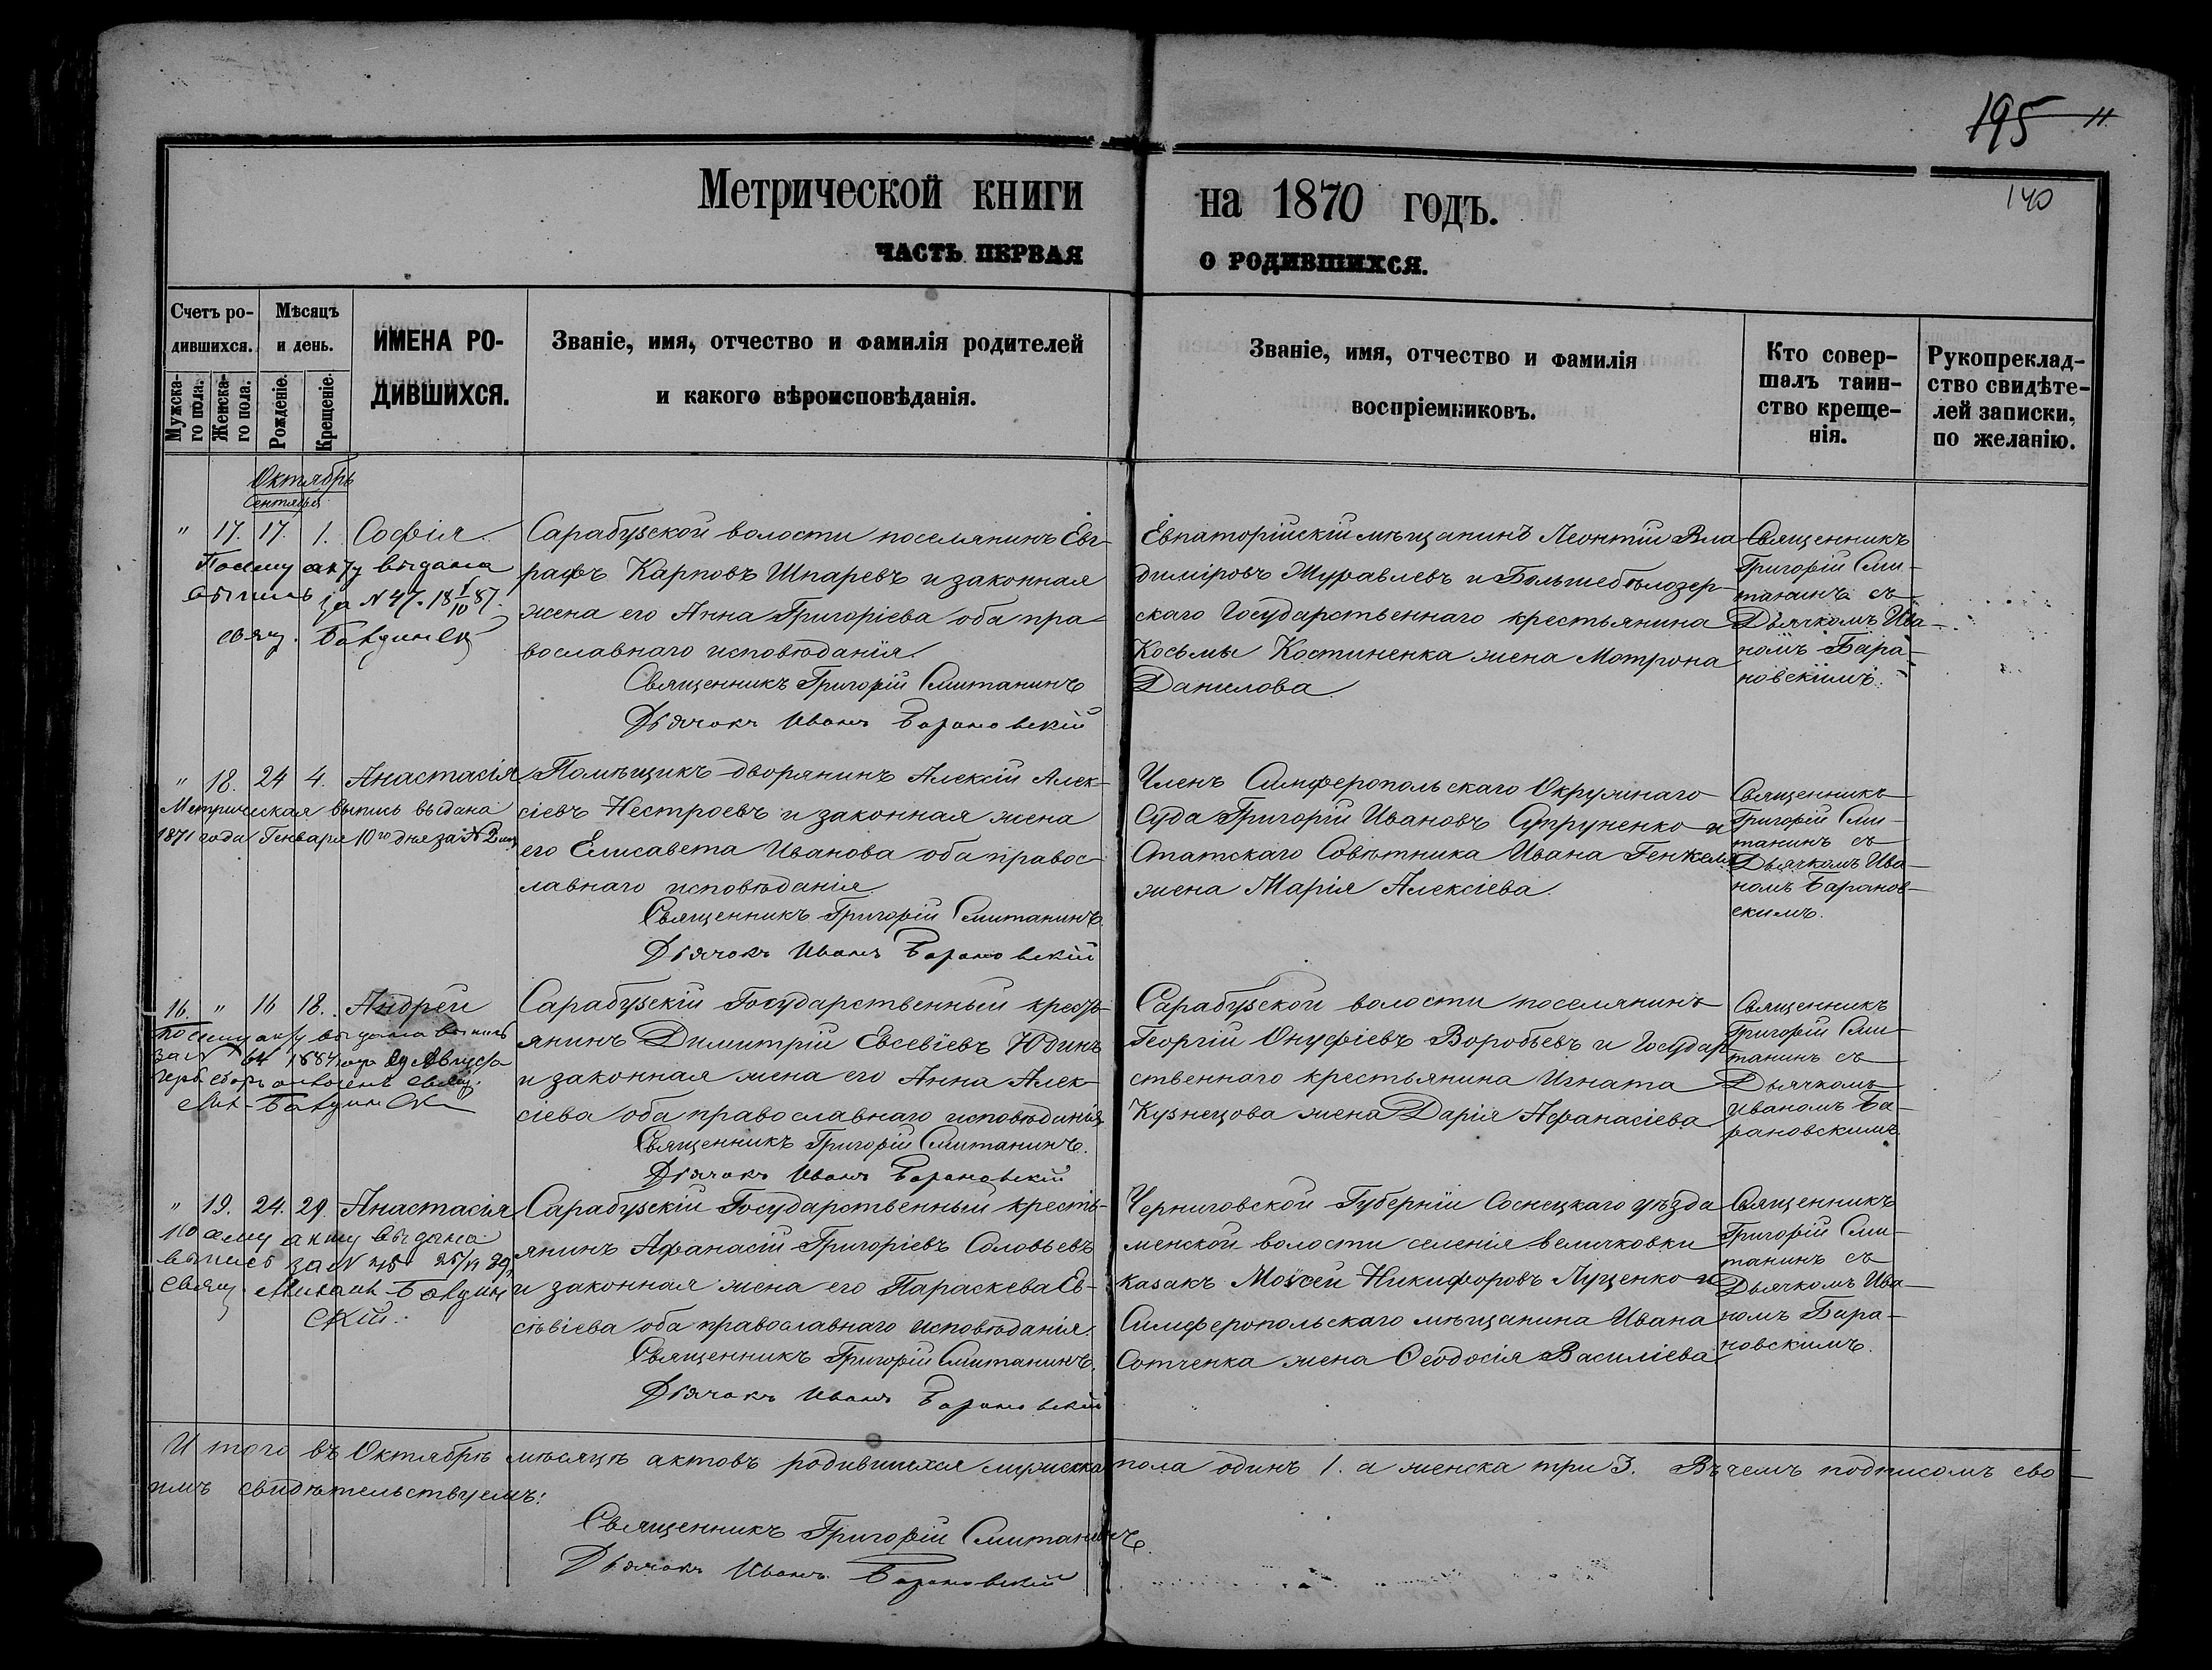 195 11.
140
Метрической книги на 1870 годъ.
ЧАСТЬ ПЕРВАЯ О РОДИВШИХСЯ.
Счетъ ро-
дившихся.
Мужска-
го пола.
Женска-
го пола.
Мѣсяцъ
и день.
Рожденіе.
Крещеніе.
ИМЕНА РО-
ДИВШИХСЯ.
Званіе, имя, отчество и фамилія родителей
и какого вѣроисповѣданія.
Званіе, имя, отчество и фамилія
воспріемниковъ.
Кто совер-
шалъ таин-
ство креще-
нія.
Рукопреклад-
ство свидѣте-
лей записки,
по желанію.
Октябрь
Сентября
" 17. 17. 1. Софія.
По сему акту выдана
выпись за N 47.
свящ.
Сарабузской волости поселянинъ Евг-
рафъ Карповъ Шпаревъ и законная
жена его Анна Григоріева оба пра-
вославнаго исповѣданія.
Священникъ Григорій Смитанинъ
Дьячокъ Иванъ Барановскій
Евпаторійскій мѣщанинъ Леонтій Вла-
диміровъ Муравлевъ и Большебѣлозер-
скаго Государственнаго крестьянина
Косьмы Костиненка жена Матрона
Данилова
Священникъ
Григорій Сми-
танинъ съ
Дьячкомъ Ива-
номъ Бара-
новскимъ.
" 18. 24 4. Анастасія
Метрическая выпись выдана
1871 года Генваря 10го дня за N 2
Помѣщикъ дворянинъ Алексій Алек-
сіевъ Нестроевъ и законная жена
его Елисавета Иванова оба правос-
лавнаго исповѣданія
Священникъ Григорій Смитанинъ.
Дьячокъ Иванъ Барановскій
Членъ Симферопольскаго Окружнаго
Суда Григорій Ивановъ Супруненко и
Статскаго Совѣтника Ивана Генкеля
жена Марія Алексіева.
Священникъ
Григорій Сми-
танинъ съ
Дьячкомъ Ива-
номъ Баранов-
скимъ.
16. " 16 18. Андрей
По сему акту выдана выпись
за N 64 1884 года 29 Августа
Сарабузскій Государственный кресть-
янинъ Димитрій Евсевіевъ Юдинъ
и законная жена его Анна Алек-
сіева оба православнаго исповѣданія
Священникъ Григорій Смитанинъ.
Дьячокъ Иванъ Барановскій
Сарабузской волости поселянинъ
Георгій Онуфріевъ Воробьевъ и Государ-
ственнаго крестьянина Игната
Кузнецова жена Дарія Афанасіева
Священникъ
Григорій Сми-
танинъ съ
Дьячкомъ
Иваномъ Ба-
рановскимъ
" 19. 24. 29. Анастасія
По сему акту выдана
выпись за N
Свящ. Михаилъ
скій.
Сарабузскій Государственный кресть-
янинъ Афанасій Григоріевъ Соловьевъ
и законная жена его Параскева Ев-
сѣвіева оба православнаго исповѣданія.
Священникъ Григорій Смитанинъ.
Дьячокъ Иванъ Барановскій
Черниговской Губерніи Сосницкаго уѣзда
менской волости селенія Величковки
казакъ Моѵсей Никифоровъ Луценко и
Симферопольскаго мѣщанина Ивана
Сотченка жена Ѳеодосія Василіева
Священникъ
Григорій Сми-
танинъ съ
Дьячкомъ Ива-
номъ Бара-
новскимъ.
Итого въ Октябрѣ мѣсяцѣ актовъ родившихся мужеска пола одинъ 1. а женска три 3. Въ чемъ подписомъ сво-
имъ свидѣтельствуемъ:
Священникъ Григорій Смитанинъ.
Дьячокъ Иванъ Барановскій